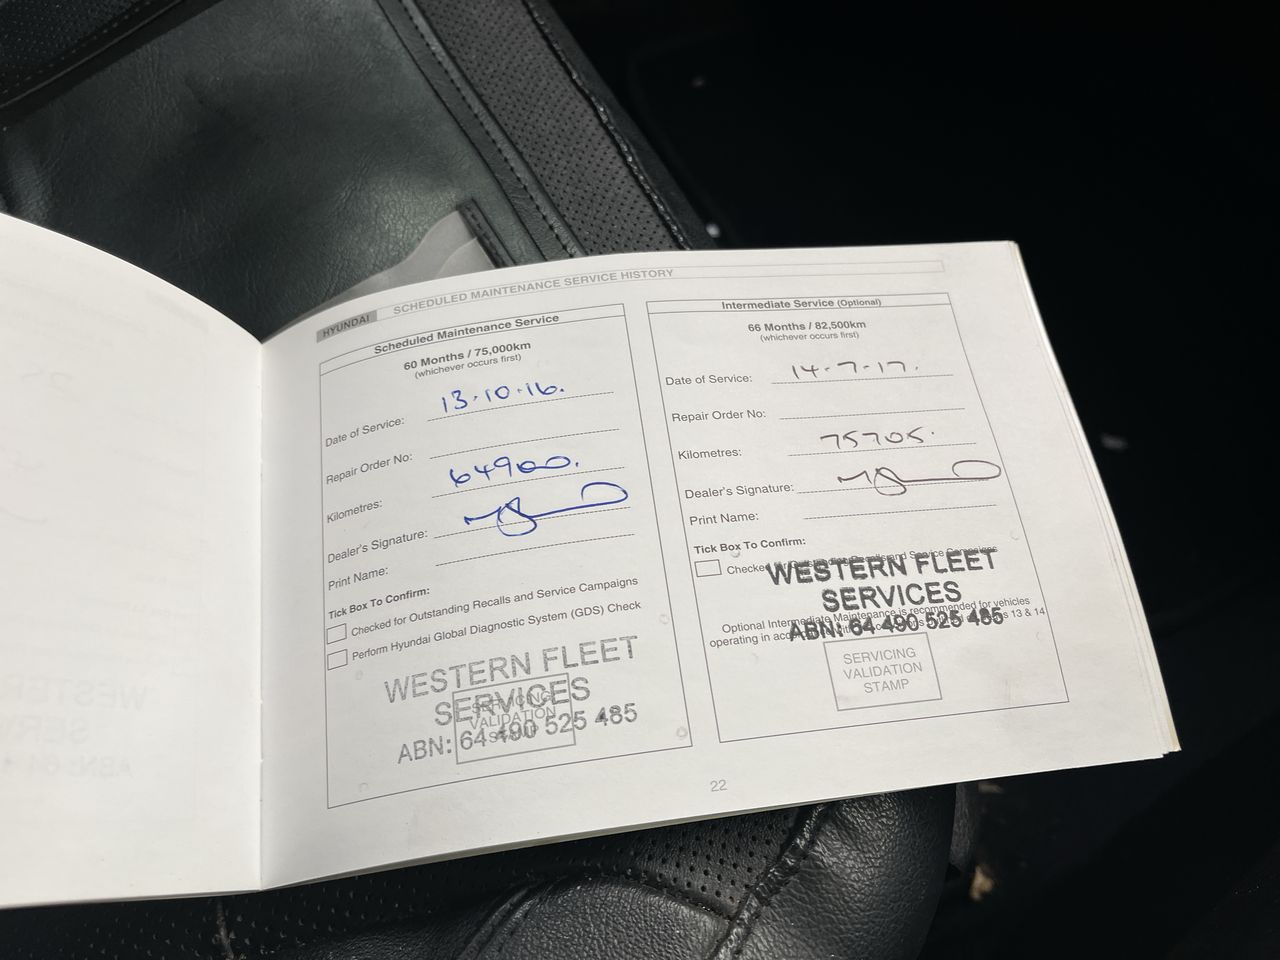 HYUNDAI SCHEDULED MAINTENANCE SERVICE HISTORY
Scheduled Maintenance Service
60 Months / 75,000km
(whichever occurs first)
Date of Service: 13.10.16.
Repair Order No:
Kilometres: 64900.
Dealer's Signature:
Print Name:
Tick Box To Confirm:
Checked for Outstanding Recalls and Service Campaigns
Perform Hyundai Global Diagnostic System (GDS) Check
WESTERN FLEET
SERVICES
ABN: 64 490 525 485
SERVICING
VALIDATION
STAMP
Intermediate Service (Optional)
66 Months / 82,500km
(whichever occurs first)
Date of Service: 14-7-17.
Repair Order No:
Kilometres: 75705.
Dealer's Signature:
Print Name:
Tick Box To Confirm:
Checked for Outstanding Recalls and Service Campaigns
WESTERN FLEET
SERVICES
ABN: 64 490 525 485
Optional Intermediate Maintenance is recommended for vehicles
operating in 13 & 14
SERVICING
VALIDATION
STAMP
22